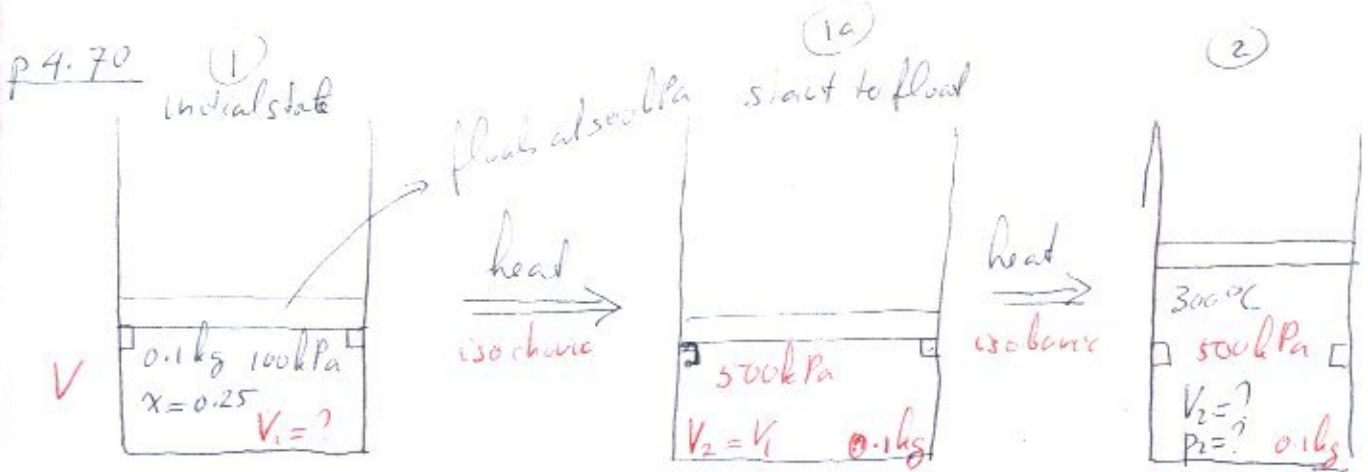 p 4.70
①
initial state
floats at 500kPa
V
0.1kg 100kPa
x = 0.25
V₁ = ?
heat
isochoric
①a
start to float
500kPa
V₂ = V₁ 0.1kg
heat
isobaric
②
300°C
500kPa
V₂ = ?
p₂ = ? 0.1kg